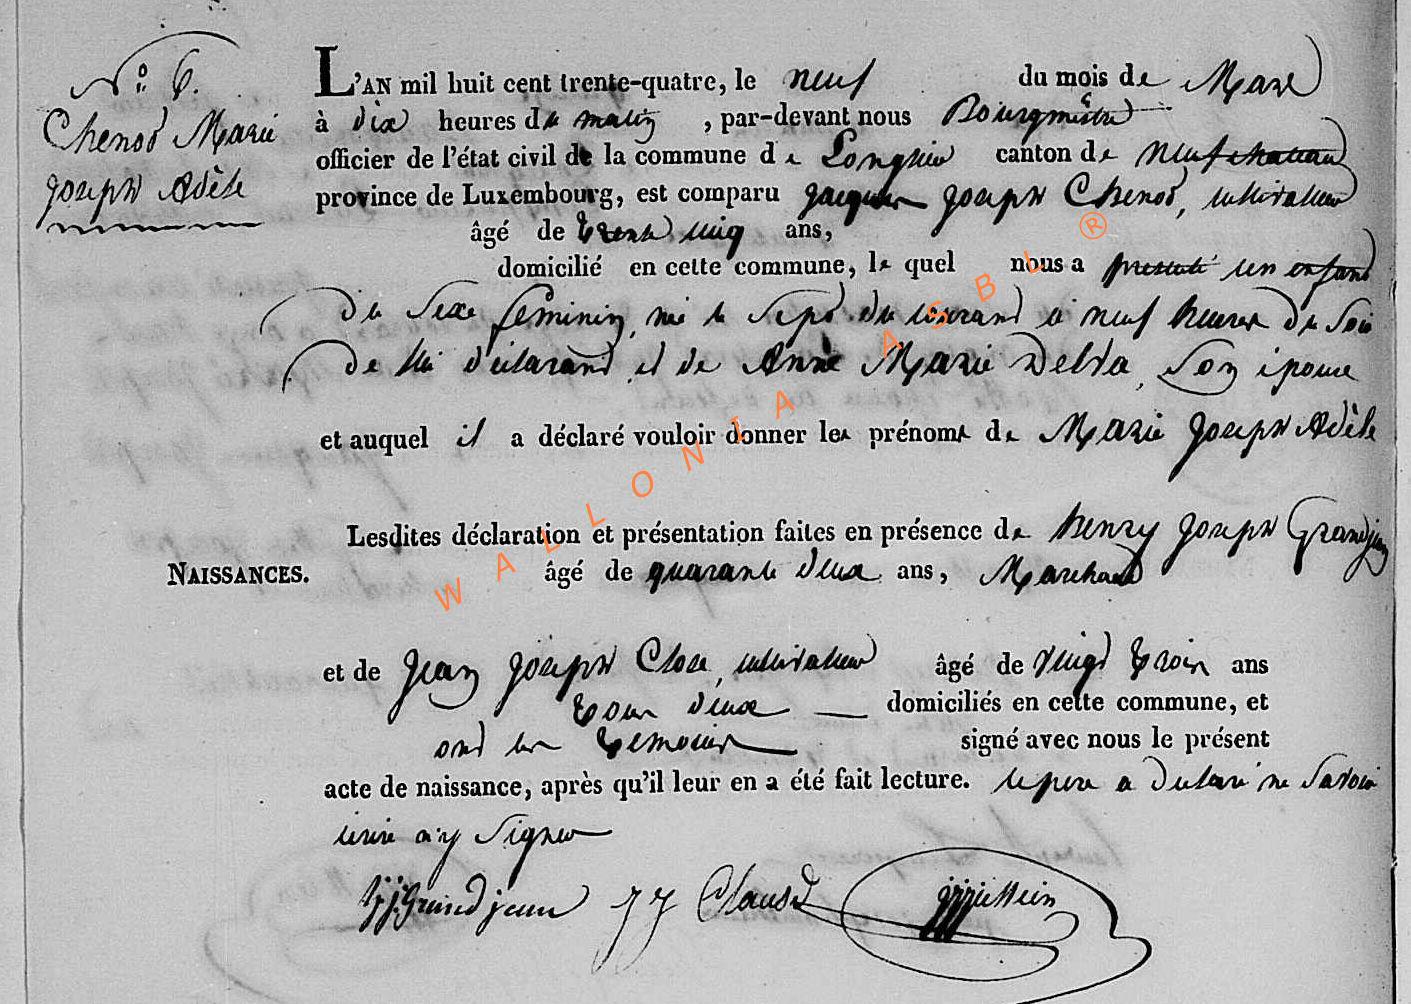 N.° 6.
Chenot Marie
Joseph Adèle
L'AN mil huit cent trente-quatre, le neuf du mois de Mars
à dix heures du matin, par-devant nous Bourgmêstre
officier de l'état civil de la commune de Longlier canton de neufchateau
province de Luxembourg, est comparu Jacques Joseph Chenot, cultivateur
âgé de trente cinq ans,
domicilié en cette commune, lequel nous a presenté un enfant
du Sexe feminin, né le Sept du courant à neuf heures du Soir
de lui déclarant, et de Anne Marie Delva, Son épouse
et auquel il a déclaré vouloir donner les prénoms de Marie Joseph Adèle
Lesdites déclaration et présentation faites en présence de henry Joseph Grandjean
NAISSANCES.
âgé de quarante deux ans, Marchand
et de Jean Joseph Close, cultivateur âgé de vingt trois ans
tous deux domiciliés en cette commune, et
ont les temoins signé avec nous le présent
acte de naissance, après qu'il leur en a été fait lecture. le pere a declaré ne Savoir
écrire ny Signer
Grandjean J J Claus
WALLONIA ASBL ®